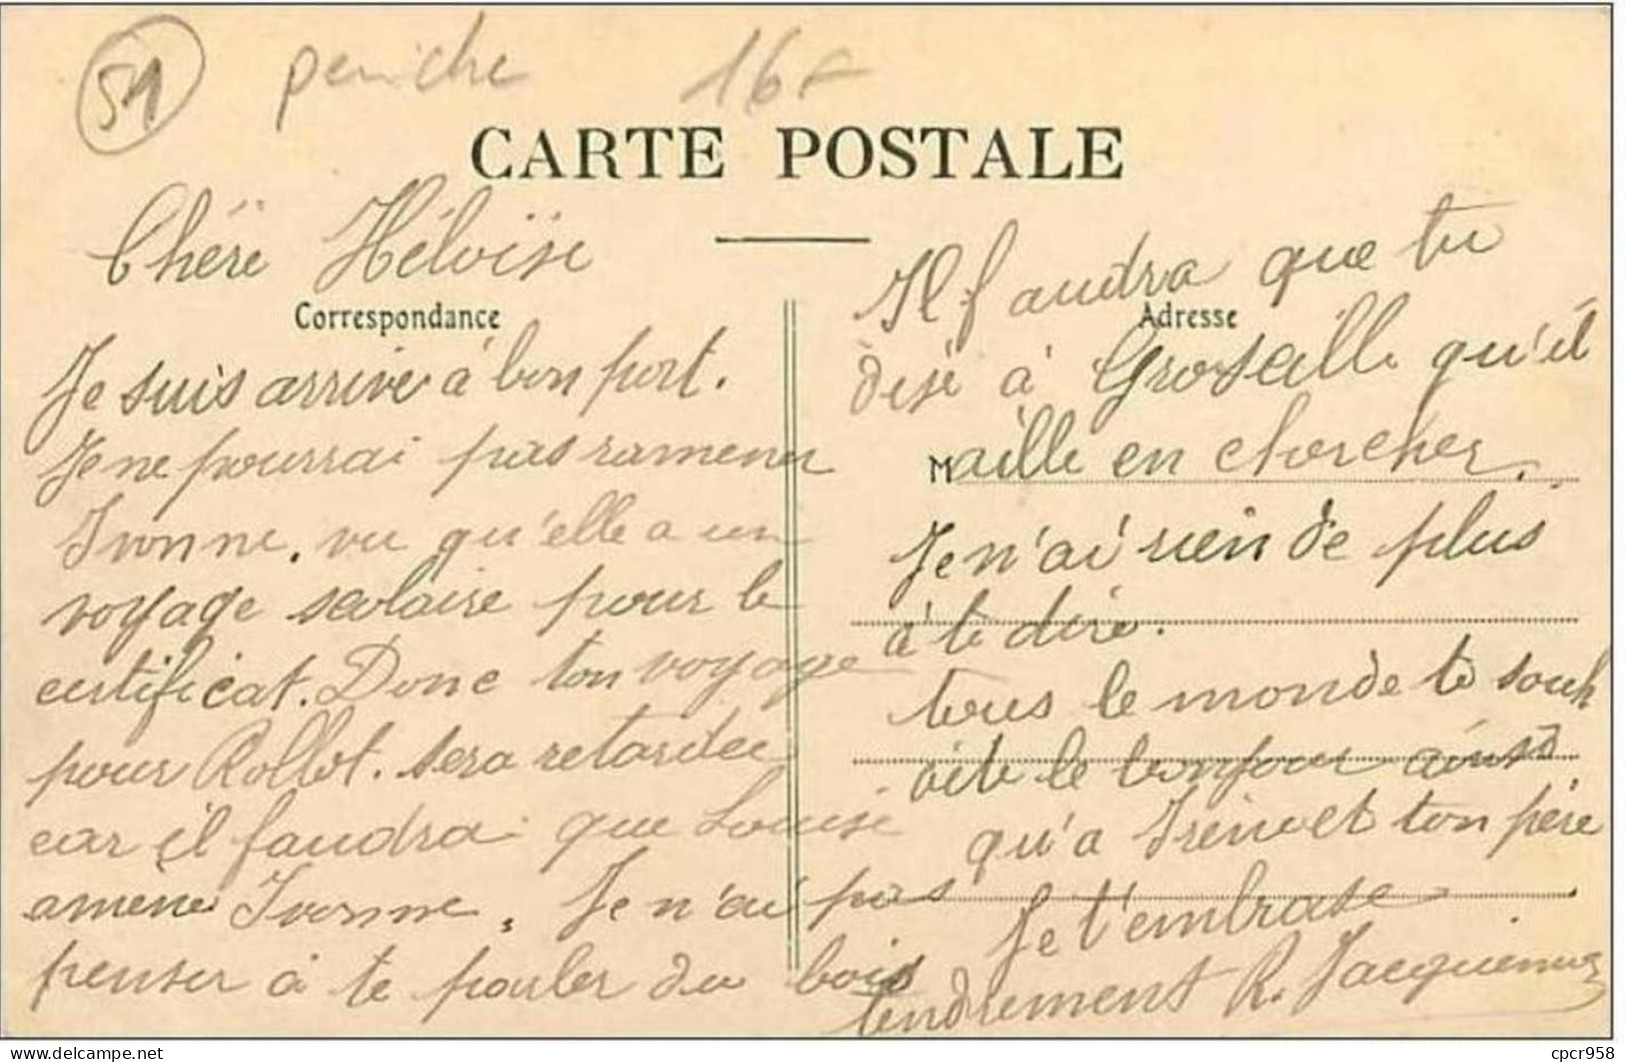 51 peniche 16F
CARTE POSTALE
Chère Héloïse
Correspondance
Je suis arrivé à bon port.
Je ne pourrai pas ramener
Ivonne, vu qu'elle a un
voyage scolaire pour le
certificat. Donc ton voyage
pour Rollot. sera retardée
car il faudra que Louise
amène Ivonne. Je n'ai pas
penser à te parler du bois
Il faudra que tu
Adresse
dise à Groseille qu'il
M aille en chercher.
Je n'ai rien de plus
à te dire.
tous le monde te souh
aite le bonjour ainsi
qu'a et ton père
Je t'embrasse
tendrement R. Jacquemin
cpcr958